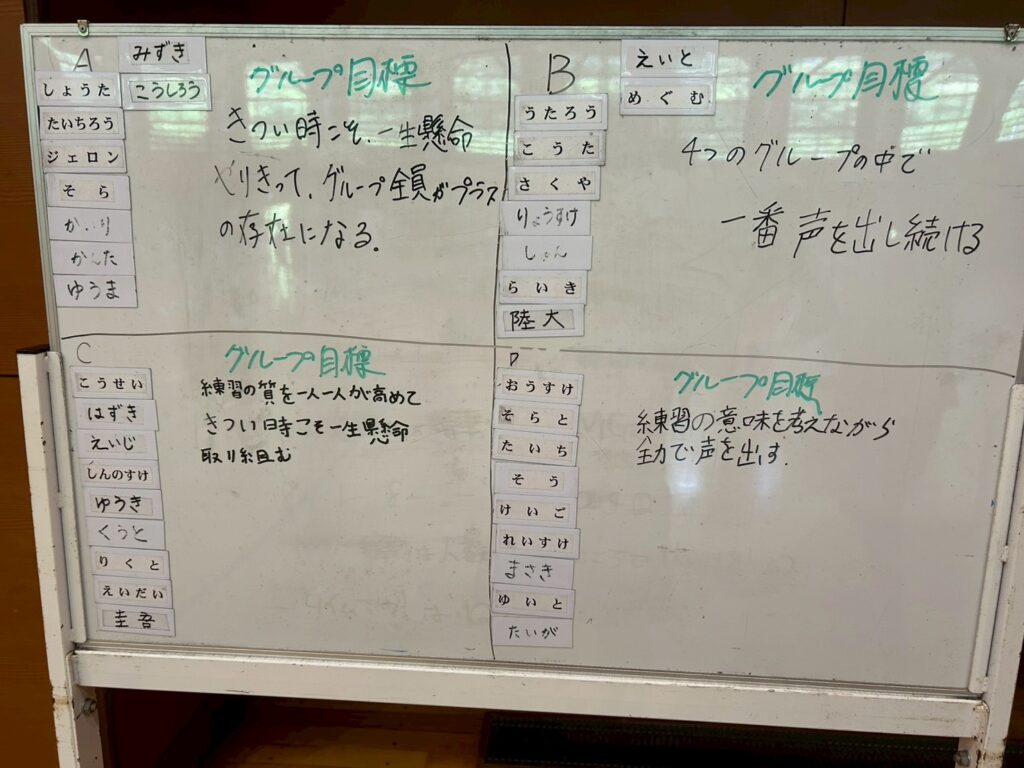 A
みずき
しょうた
こうしろう
たいちろう
ジェロン
そら
かんた
ゆうま
グループ目標
きつい時こそ、一生懸命
やりきって、グループ全員がプラス
の存在になる。
B
えいと
めぐむ
うたろう
こうた
さくや
りょうすけ
しょん
らいき
陸大
グループ目標
4つのグループの中で
一番声を出し続ける
C
こうせい
はずき
えいじ
しんのすけ
ゆうき
くうと
りくと
えいだい
圭吾
グループ目標
練習の質を一人一人が高めて
きつい時こそ一生懸命
取り組む
D
おうすけ
そらと
たいち
そう
けいご
れいすけ
まさき
ゆいと
たいが
グループ目標
練習の意味を考えながら
全力で声を出す.